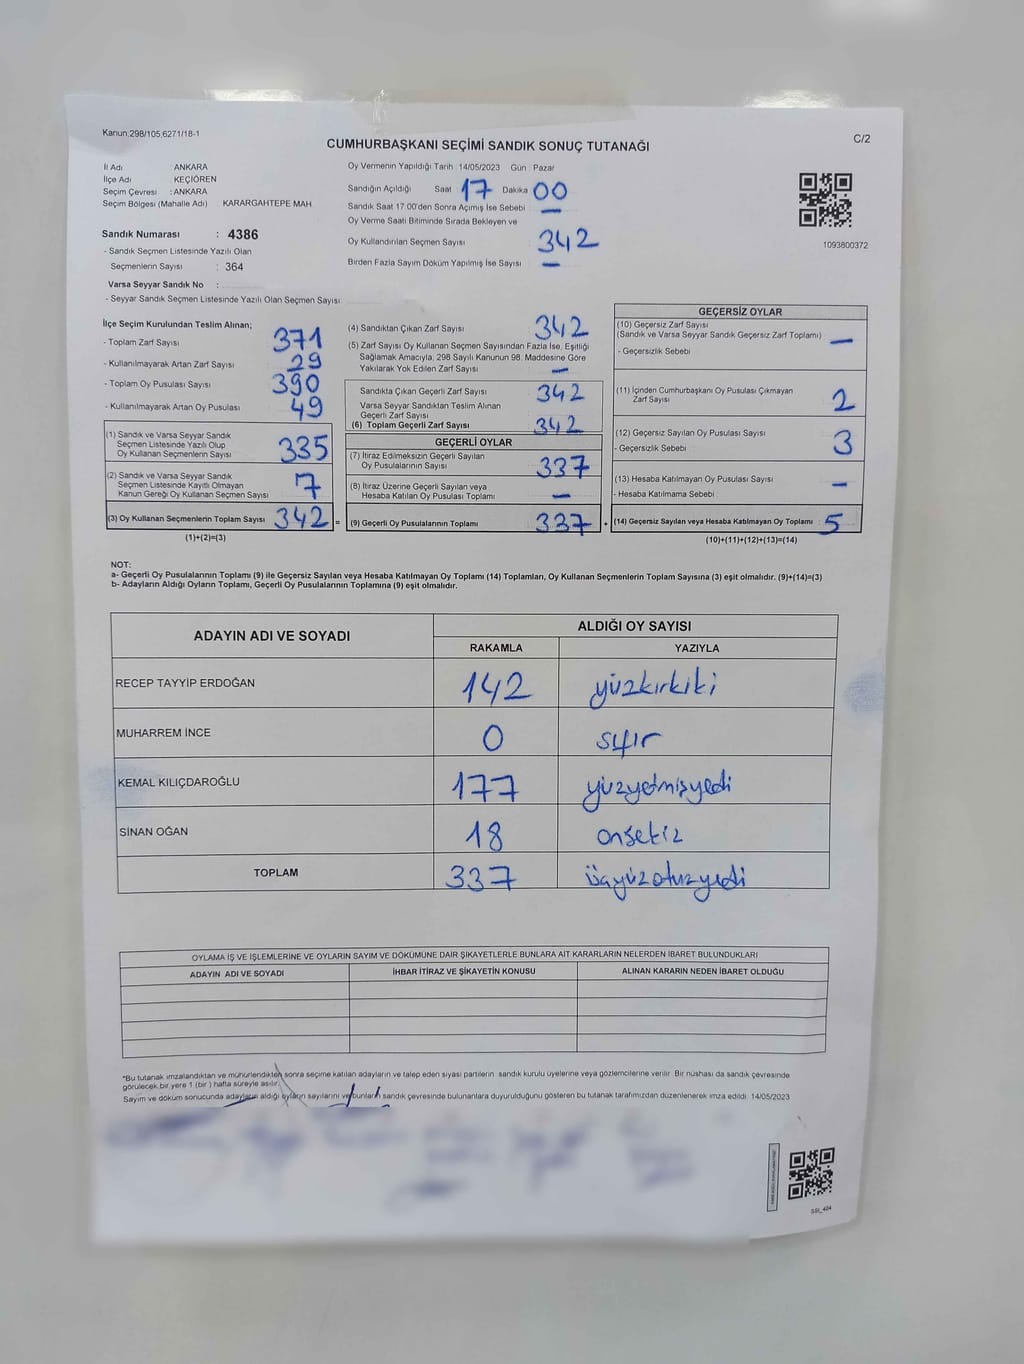 Kanun;298/105,6271/18-1
C/2
CUMHURBAŞKANI SEÇİMİ SANDIK SONUÇ TUTANAĞI
İl Adı : ANKARA
İlçe Adı : KEÇİÖREN
Seçim Çevresi : ANKARA
Seçim Bölgesi (Mahalle Adı) : KARARGAHTEPE MAH
Sandık Numarası : 4386
- Sandık Seçmen Listesinde Yazılı Olan
Seçmenlerin Sayısı : 364
Varsa Seyyar Sandık No :
- Seyyar Sandık Seçmen Listesinde Yazılı Olan Seçmen Sayısı:
Oy Vermenin Yapıldığı Tarih : 14/05/2023 Gün : Pazar
Sandığın Açıldığı Saat 17 Dakika 00
Sandık Saat 17.00'den Sonra Açılmış İse Sebebi : —
Oy Verme Saati Bitiminde Sırada Bekleyen ve
Oy Kullandırılan Seçmen Sayısı 342
Birden Fazla Sayım Döküm Yapılmış İse Sayısı : —
1093800372
İlçe Seçim Kurulundan Teslim Alınan;
- Toplam Zarf Sayısı : 371
- Kullanılmayarak Artan Zarf Sayısı : 29
- Toplam Oy Pusulası Sayısı : 390
- Kullanılmayarak Artan Oy Pusulası : 49
(1) Sandık ve Varsa Seyyar Sandık
Seçmen Listesinde Yazılı Olup
Oy Kullanan Seçmenlerin Sayısı : 335
(2) Sandık ve Varsa Seyyar Sandık
Seçmen Listesinde Kayıtlı Olmayan
Kanun Gereği Oy Kullanan Seçmen Sayısı : 7
(3) Oy Kullanan Seçmenlerin Toplam Sayısı : 342 =
(1)+(2)=(3)
(4) Sandıktan Çıkan Zarf Sayısı : 342
(5) Zarf Sayısı Oy Kullanan Seçmen Sayısından Fazla İse, Eşitliği
Sağlamak Amacıyla, 298 Sayılı Kanunun 98. Maddesine Göre
Yakılarak Yok Edilen Zarf Sayısı : —
Sandıkta Çıkan Geçerli Zarf Sayısı : 342
Varsa Seyyar Sandıktan Teslim Alınan
Geçerli Zarf Sayısı
(6) Toplam Geçerli Zarf Sayısı : 342
GEÇERLİ OYLAR
(7) İtiraz Edilmeksizin Geçerli Sayılan
Oy Pusulalarının Sayısı : 337
(8) İtiraz Üzerine Geçerli Sayılan veya
Hesaba Katılan Oy Pusulası Toplamı : —
(9) Geçerli Oy Pusulalarının Toplamı : 337 +
GEÇERSİZ OYLAR
(10) Geçersiz Zarf Sayısı
(Sandık ve Varsa Seyyar Sandık Geçersiz Zarf Toplamı) : —
- Geçersizlik Sebebi :
(11) İçinden Cumhurbaşkanı Oy Pusulası Çıkmayan
Zarf Sayısı : 2
(12) Geçersiz Sayılan Oy Pusulası Sayısı : 3
- Geçersizlik Sebebi :
(13) Hesaba Katılmayan Oy Pusulası Sayısı : —
- Hesaba Katılmama Sebebi :
(14) Geçersiz Sayılan veya Hesaba Katılmayan Oy Toplamı : 5
(10)+(11)+(12)+(13)=(14)
NOT:
a- Geçerli Oy Pusulalarının Toplamı (9) ile Geçersiz Sayılan veya Hesaba Katılmayan Oy Toplamı (14) Toplamları, Oy Kullanan Seçmenlerin Toplam Sayısına (3) eşit olmalıdır. (9)+(14)=(3)
b- Adayların Aldığı Oyların Toplamı, Geçerli Oy Pusulalarının Toplamına (9) eşit olmalıdır.
ADAYIN ADI VE SOYADI ALDIĞI OY SAYISI
RAKAMLA YAZIYLA
RECEP TAYYİP ERDOĞAN 142 yüzkırkiki
MUHARREM İNCE 0 sıfır
KEMAL KILIÇDAROĞLU 177 yüzyetmişyedi
SİNAN OĞAN 18 onsekiz
TOPLAM 337 üçyüzotuzyedi
OYLAMA İŞ VE İŞLEMLERİNE VE OYLARIN SAYIM VE DÖKÜMÜNE DAİR ŞİKAYETLERLE BUNLARA AİT KARARLARIN NELERDEN İBARET BULUNDUKLARI
ADAYIN ADI VE SOYADI İHBAR İTİRAZ VE ŞİKAYETİN KONUSU ALINAN KARARIN NEDEN İBARET OLDUĞU
*Bu tutanak imzalandıktan ve mühürlendikten sonra seçime katılan adayların ve talep eden siyasi partilerin sandık kurulu üyelerine veya gözlemcilerine verilir. Bir nüshası da sandık çevresinde
görülecek bir yere 1 (bir) hafta süreyle asılır.
Sayım ve döküm sonucunda adayların aldığı oyların sayılarını ve bunların sandık çevresinde bulunanlara duyurulduğunu gösteren bu tutanak tarafımızdan düzenlenerek imza edildi. 14/05/2023